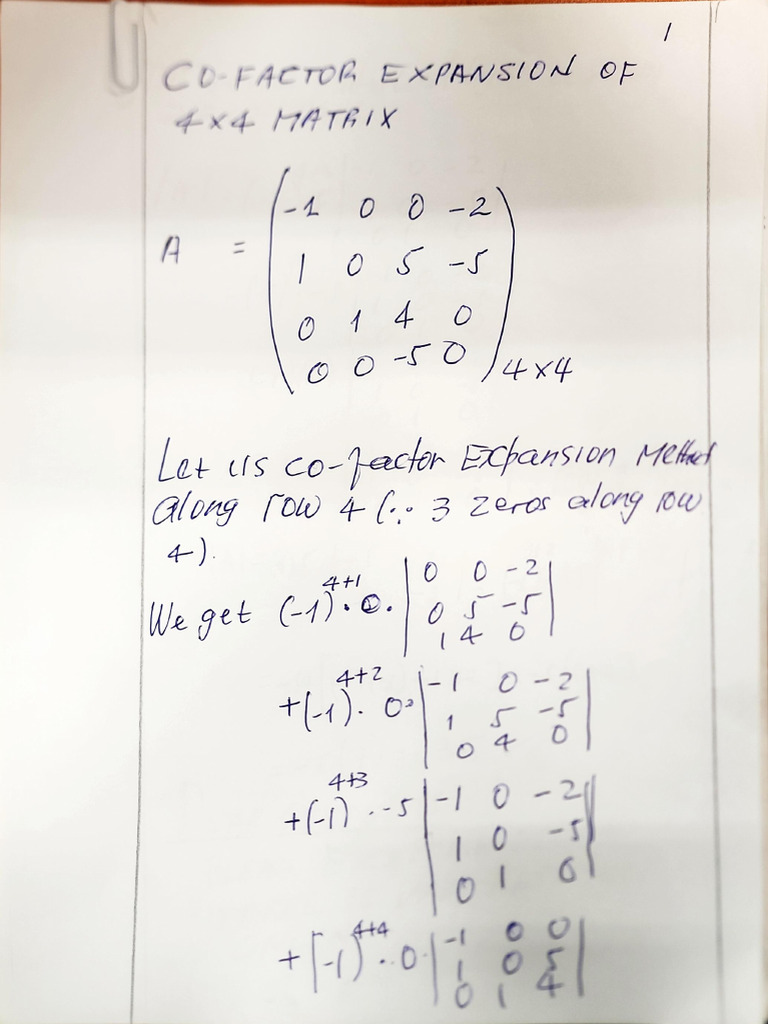 1
CO-FACTOR EXPANSION OF
4×4 MATRIX
A = ( -1 0 0 -2
1 0 5 -5
0 1 4 0
0 0 -5 0 ) 4×4
Let us co-factor Expansion Method
along row 4 (∵ 3 zeros along row
4).
We get (-1)^4+1 · 0 · | 0 0 -2
0 5 -5
1 4 0 |
+(-1)^4+2 · 0 · | -1 0 -2
1 5 -5
0 4 0 |
+(-1)^4+3 · -5 | -1 0 -2
1 0 -5
0 1 0 |
+(-1)^4+4 · 0 | -1 0 0
1 0 5
0 1 4 |